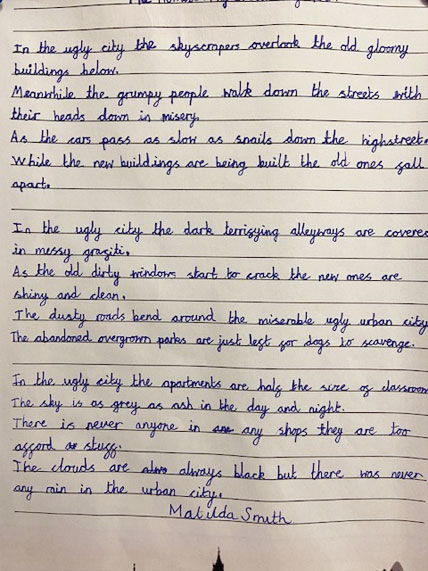 In the ugly city the skyscrapers overlook the old gloomy
buildings below.
Meanwhile the grumpy people walk down the streets with
their heads down in misery.
As the cars pass as slow as snails down the highstreet.
While the new buildings are being built the old ones fall
apart.
In the ugly city the dark terrifying alleyways are covered
in messy grafiti.
As the old dirty windows start to crack the new ones are
shiny and clean.
The dusty roads bend around the miserable ugly urban city
The abandoned overgrown parks are just left for dogs to scavenge.
In the ugly city the apartments are half the size of classroom
The sky is as grey as ash in the day and night.
There is never anyone in any shops they are too
afford stuff.
The clouds are always black but there was never
any rain in the urban city.
Matilda Smith